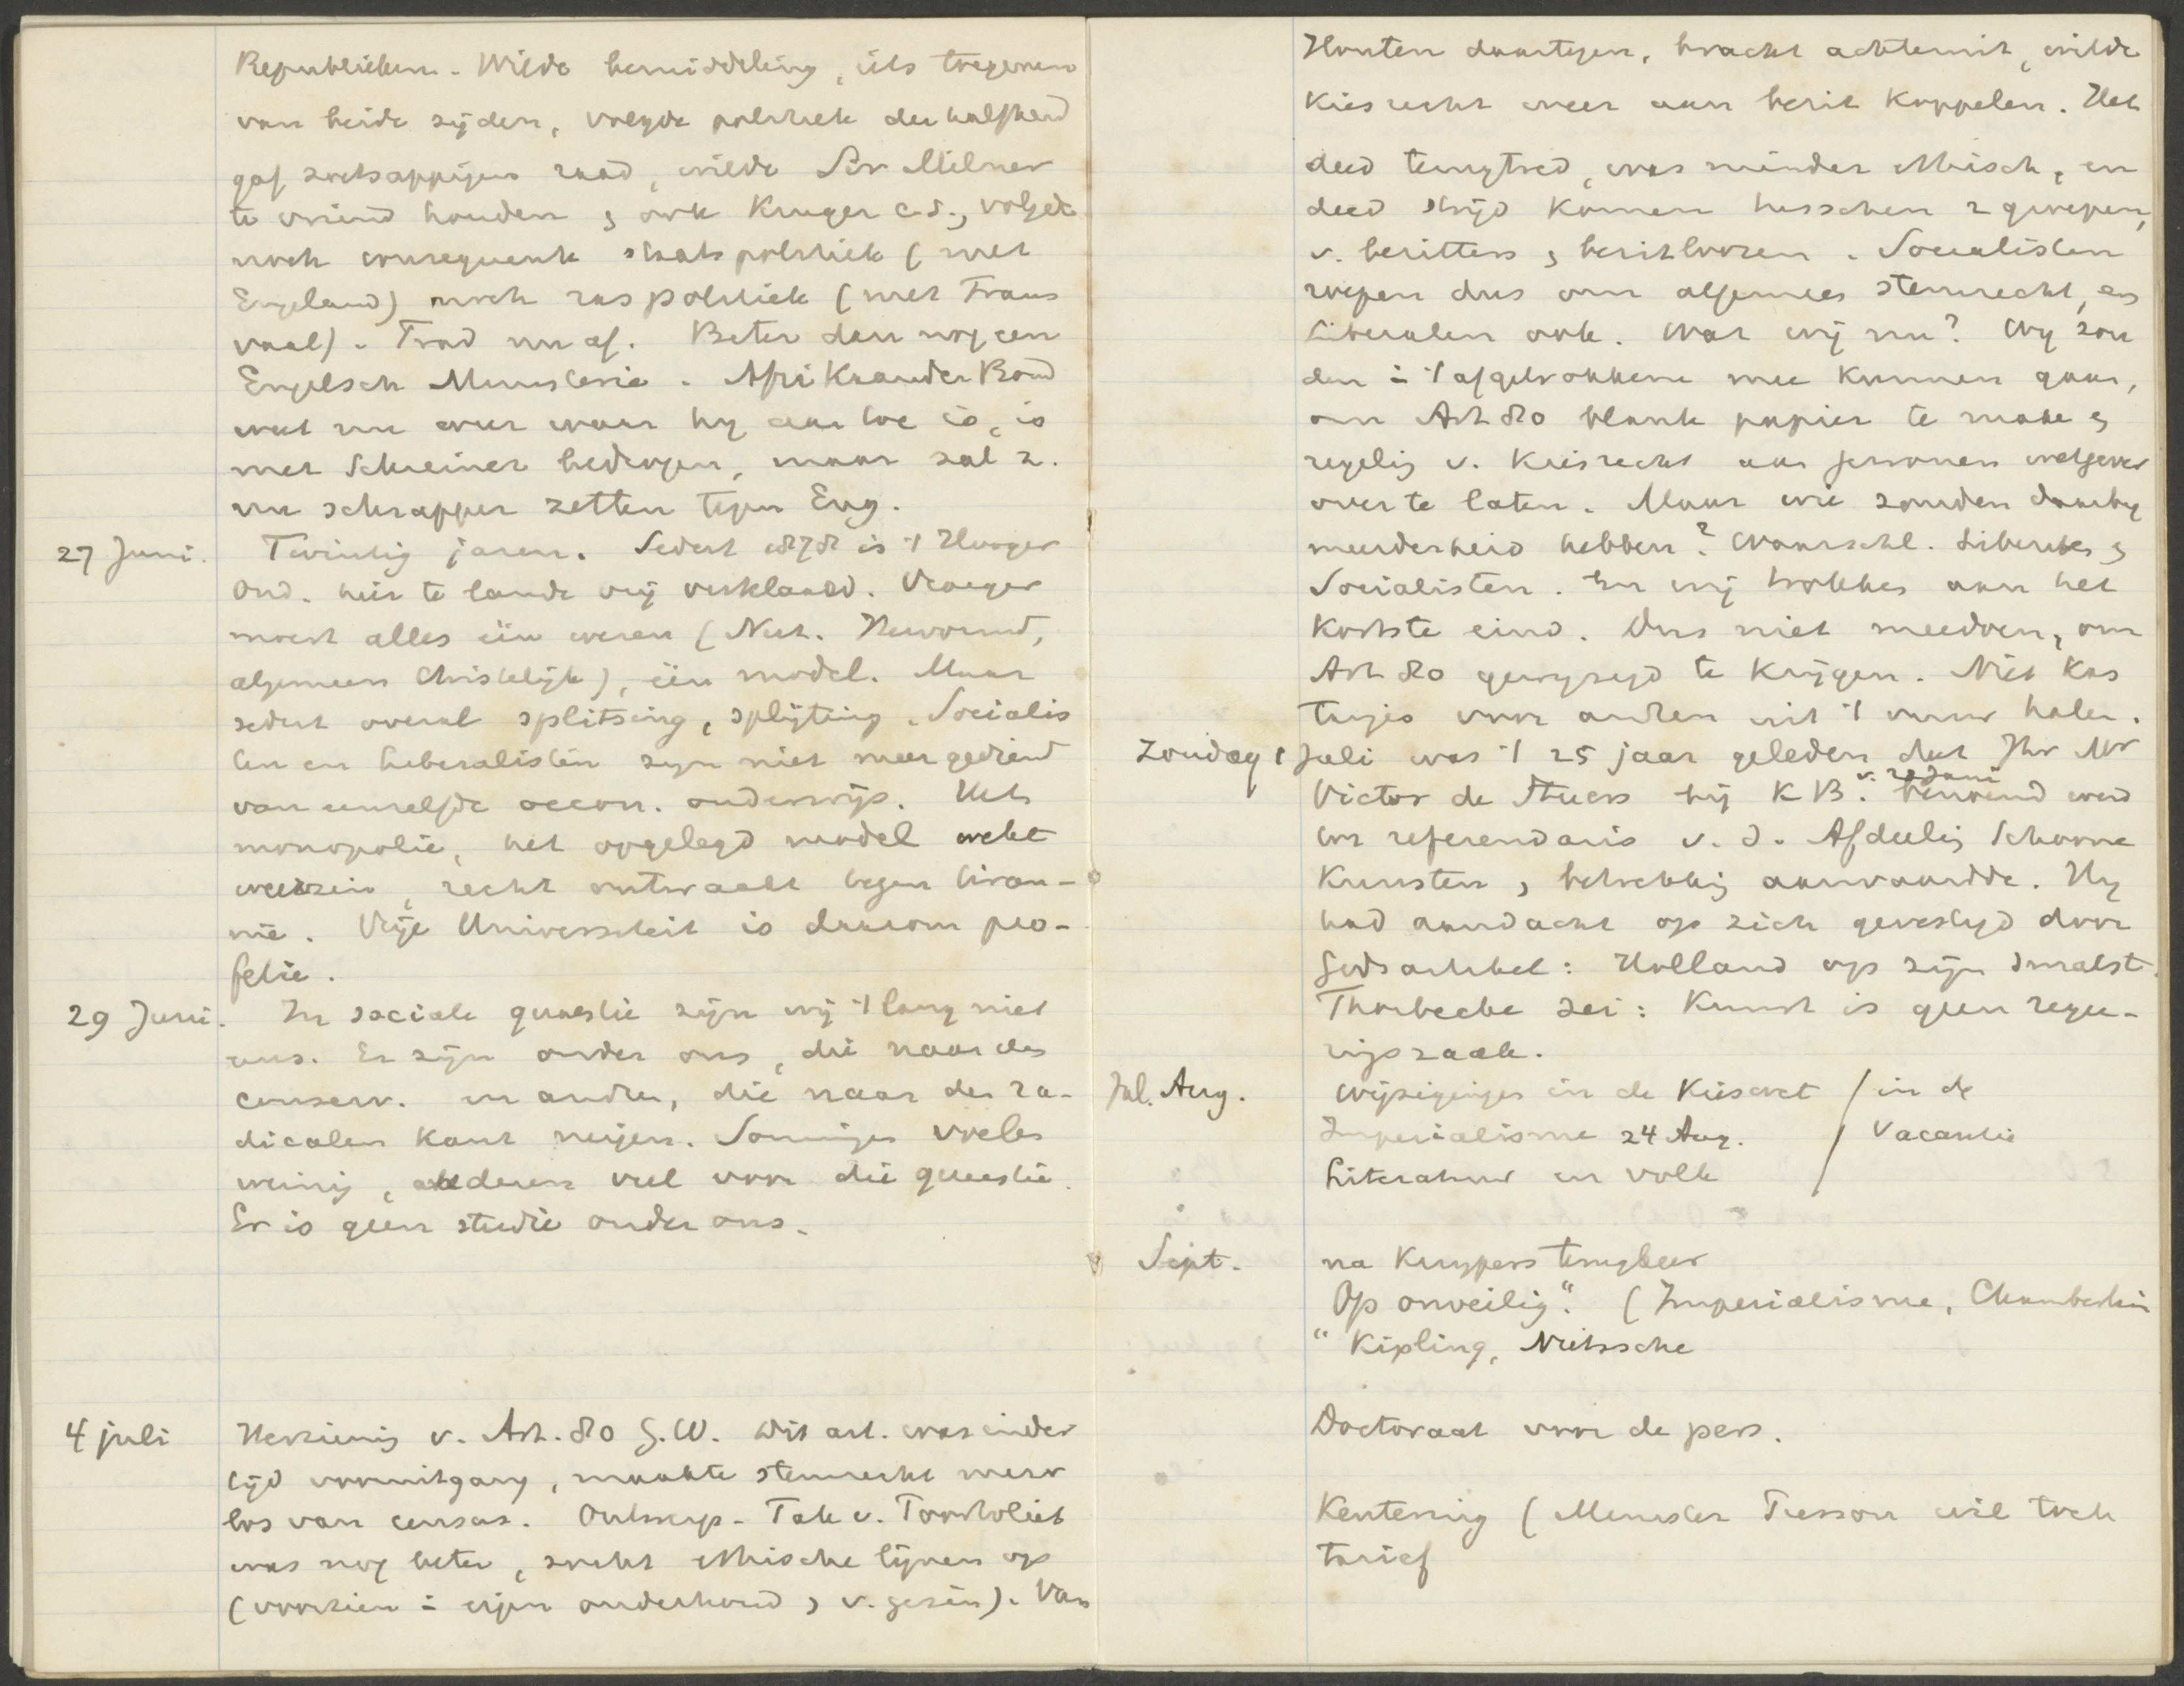 Republieken. Wilde bemiddeling, iets toegeven
van beide zijden, volgde politiek der halfheid
gaf zoetsappigen raad, wilde Sir Milner
te vriend houden & ook Kruger c.s., volgde
noch consequente staatspolitiek (met
Engeland) noch raspolitiek (met Trans
vaal). Trad nu af. Beter dan nog een
Engelsch Ministerie. Afrikaander Bond
weet nu weer waar hy aan toe is, is
met Schreiner bedrogen, maar zal z.
nu schrapper zetten tegen Eng.
27 Juni. Twintig jaren. Sedert 1878 is 't Hooger
Ond. hier te lande vrij verklaard. Vroeger
moest alles één wezen (Nat. Hervormd,
algemeen Christelijk), één model. Maar
sedert overal splitsing, splijting. Socialis
ten en liberalisten zyn niet meer gediend
van eenzelfde oecon. onderwijs. Het
monopolie, het opgelegd model wekt
weerzin, recht ontwaakt tegen tiran-
nie. Vrije Universiteit is daarom pro-
fetie.
29 Juni. In sociale quaestie zijn wij 't lang niet
eens. Er zijn onder ons, die naar den
conserv. en andren, die naar den ra-
dicalen kant neigen. Sommigen voelen
weinig, anderen veel voor die quaestie.
Er is geen studie onder ons.
4 juli Herziening v. Art. 80 G.W. Dit art. was indertijd
tijd vooruitgang, maakte stemrecht meer
los van census. Ontwerp-Tak v. Poortvliet
was nog beter, zocht ethische lijnen op
(voorzien = eigen onderhoud & v. gezin). Van
Houten daartegen, bracht achteruit, wilde
Kiesrecht weer aan bezit koppelen. Het
deed terugtred, was minder ethisch, en
deed strijd komen tusschen 2 groepen,
v. bezitters & bezitloozen. Socialisten
roepen dus om algemeen stemrecht, en
Liberalen ook. Wat wij nu? Wy zou
den = 't afgetrokkene mee kunnen gaan,
om Art 80 blank papier te maken &
regeling v. Kiesrecht aan gewonen wetgever
over te laten. Maar wie zouden daarby
meerderheid hebben? Waarschl. Liberalen &
Socialisten. En wij trokken aan het
kortste eind. Dus niet meedoen, om
Art 80 gewyzigd te krijgen. Niet kas
tanjes voor andren uit 't vuur halen.
Zondag 1 Juli was 't 25 jaar geleden dat Jhr Mr
Victor de Stuers bij K B. v. 28 Juni benoemd werd
tot referendaris v. d. Afdeeling Schoone
Kunsten, & betrekking aanvaardde. Hy
had aandacht op zich gevestigd door
Gidsartikel: Holland op zijn smalst.
Thorbecke zei: Kunst is geen regee-
ringszaak.
Jul. Aug. Wijzigingen in de Kieswet / in de
Imperialisme 24 Aug. / Vacantie
Literatuur en volk /
Sept. na Kuypers terugkeer
Op onveilig". (Imperialisme, Chamberlain
" Kipling, Nietssche
Doctoraat voor de pers.
Kentering (Minister Pierson wil toch
tarief